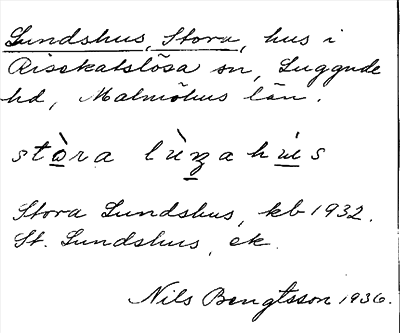 Lundshus, Stora, hus i
Risekatslösa sn, Luggude
hd, Malmöhus län.
Stora Lundshus, kb 1932.
St. Lundshus, ek.
Nils Bengtsson 1936.